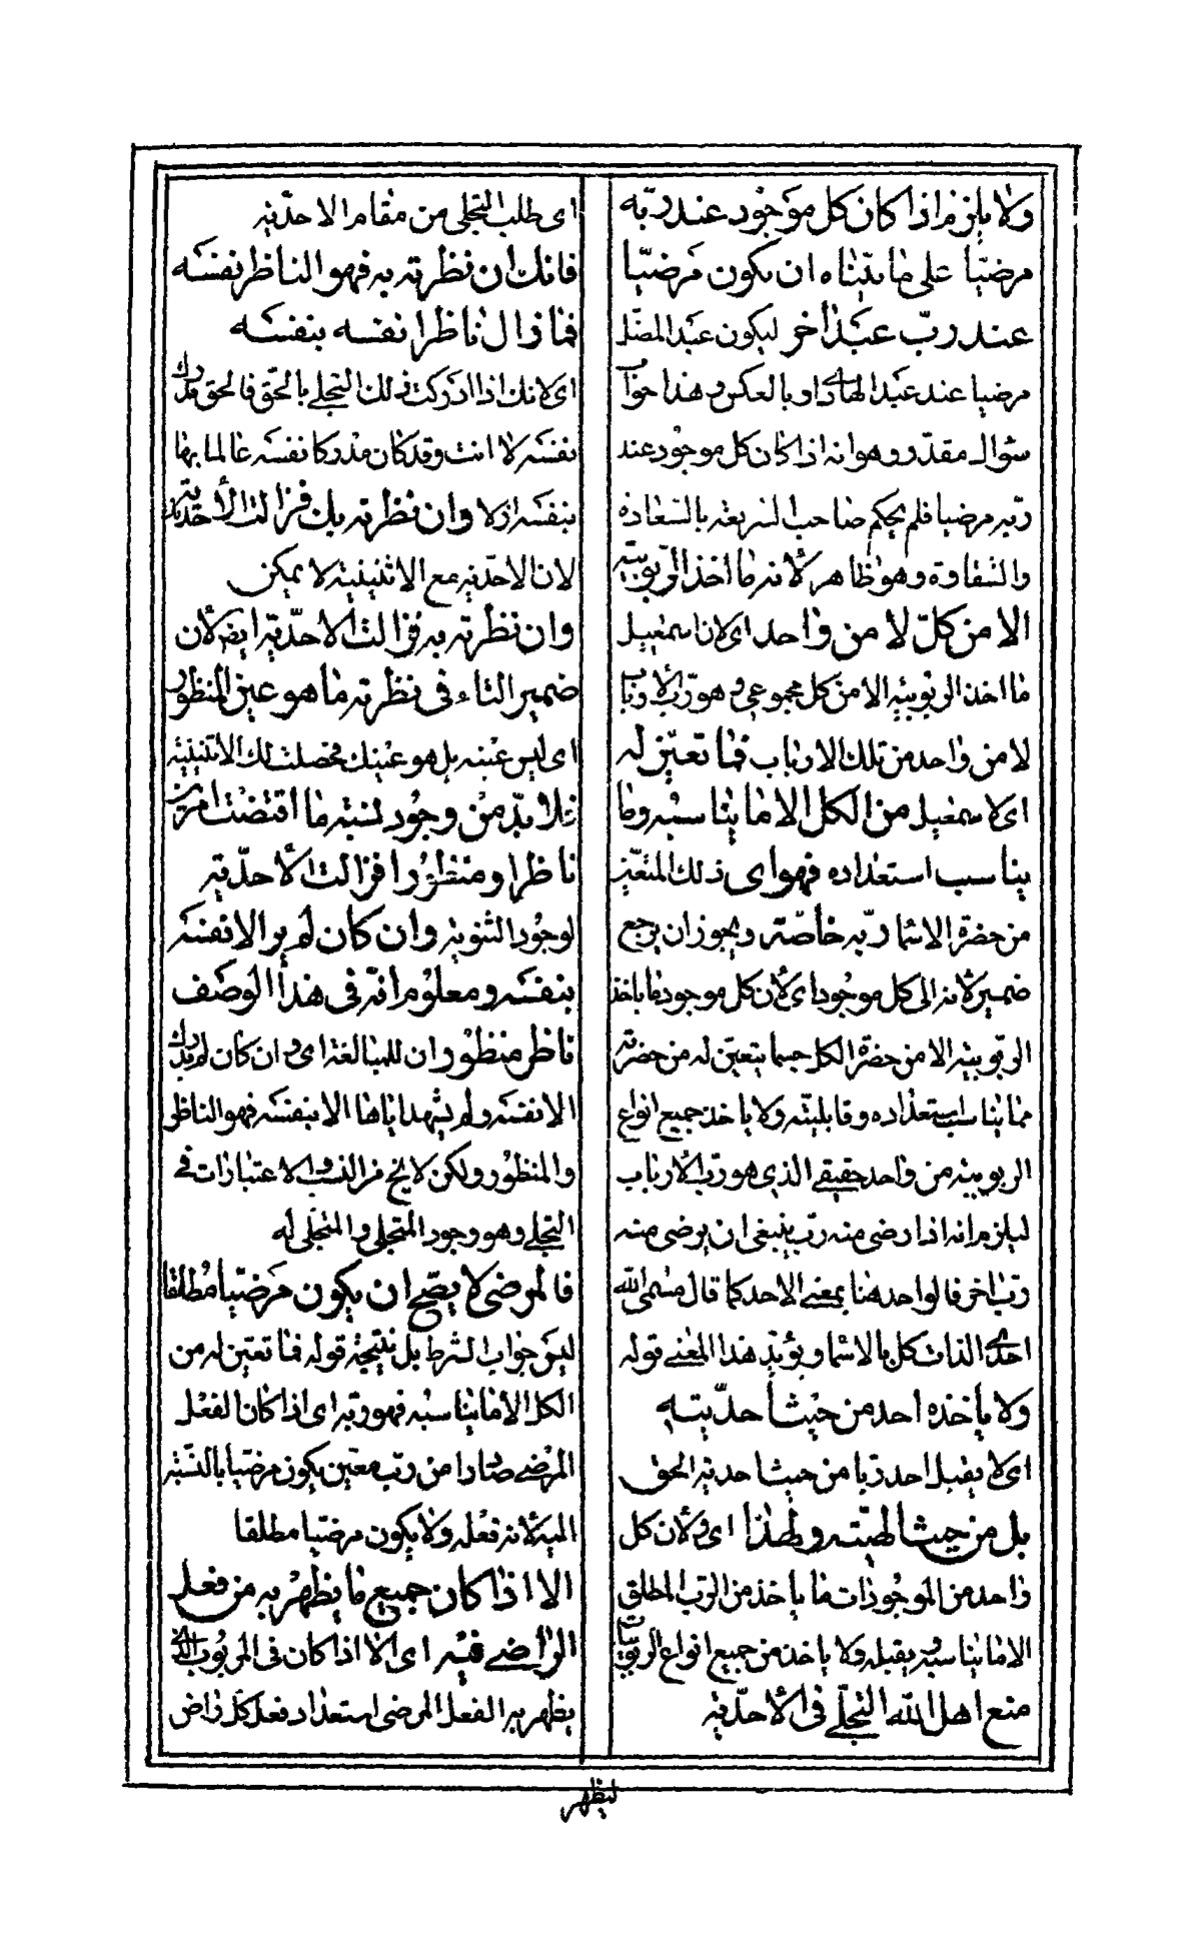 ولا يلزم اذا كان كل موجود عند ربّه
مرضيّا على ما بيّناه ان يكون مرضيّا
عند ربّ عبد اخر ليكون عبد المضل
مرضيا عند عبد الهادى او بالعكس وهذا جواب
سؤال مقدر وهو انه اذا كان كل موجود عند
ربه مرضيا فلم يحكم صاحب الشريعة بالسعادة
والشقاوة وهو ظاهر لأنه ما اخذ الربوبيّة
الا من كلّ لا من واحد اى لان اسمعيل
ما اخذ الربوبية الا من كل مجموعى وهو ربّ الأرباب
لا من واحد من تلك الارباب فما تعيّن له
اى لاسمعيل من الكل الا ما يناسبه وما
يناسب استعداده فهو اى ذلك المتعيّن
من حضرة الاسماء ربّه خاصّة ويجوز ان يرجع
ضمير لأنه الى كل موجود اى لأن كل موجود ما ياخذ
الربوبية الا من حضرة الكل حسبما يتعيّن له من حضرته
مما يناسب استعداده وقابليته ولا ياخذ جميع انواع
الربوبية من واحد حقيقى الذى هو ربّ الأرباب
ليلزم انه اذا رضى منه ربّ ينبغى ان يرضى منه
ربّ اخر فالواحد هنا بمعنى الاحد كما قال مسمى الله
احدىّ الذات كل بالاسماء ويؤيّد هذا المعنى قوله
ولا يأخذه احد من حيث أحدّيته
اى لا يقبل احد ربا من حيث احديته الحق
بل من حيث الهيّته ولهذا اى ولأن كل
واحد من الموجودات ما ياخذ من الرب المطلق
الا ما يناسبه ويقبله ولا ياخذ من جميع انواع الربوبيات
منع اهل الله التجلّى فى الأحدّية
اى طلب التجلى من مقام الاحدّية
فانك ان نظرته به فهو الناظر نفسَه
فما زال ناظرا نفسه بنفسه
اى لانك اذا ادركت ذلك التجلى بالحق فالحق مدرك
نفسَه لا انت وقد كان مدركا نفسه عالما بها
بنفسه ازلا وان نظرته بك فزالت الأحدّية بك
لان الاحدّية مع الاثنينية لا يمكن
وان نظرته به وبك فزالت الأحدّية ايضا لأن
ضمير التاء فى نظرته ما هو عين المنظور
اى ليس عينه بل هو عينك فحصلت لك الاثنينية
فلا بدّ من وجود نسبة ما اقتضت امرين
ناظرا ومنظورا فزالت الأحدّية
لوجود الثنوية وان كان لم ير الا نفسَه
بنفسه ومعلوم انّه فى هذا الوصف
ناظر منظور ان للمبالغة اى وان كان لم يدرك
الا نفسَه ولم يشهد اياها الا بنفسَه فهو الناظر
والمنظور ولكن لا يخ من النسب والاعتبارات فى
التجلى وهو وجود المتجلى والمتجلى له
فالمرضى لا يصّح ان يكون مرضيّا مُطلقا
ليس جواب الشرط بل نتيجة قوله فما تعيّن له من
الكل الا ما يناسبه فهو ربه اى اذا كان الفعل
المرضى صادرا من ربّ معيّن يكون مرضيّا بالنسبة
اليه لأنه فعله ولا يكون مرضيّا مطلقا
الا اذا كان جميع ما يظهر به من فعل
الراضى فيه اى الا اذا كان فى المربُوب الذى
يظهر به الفعل المرضى استعداد فعل كل راض
ليظهر